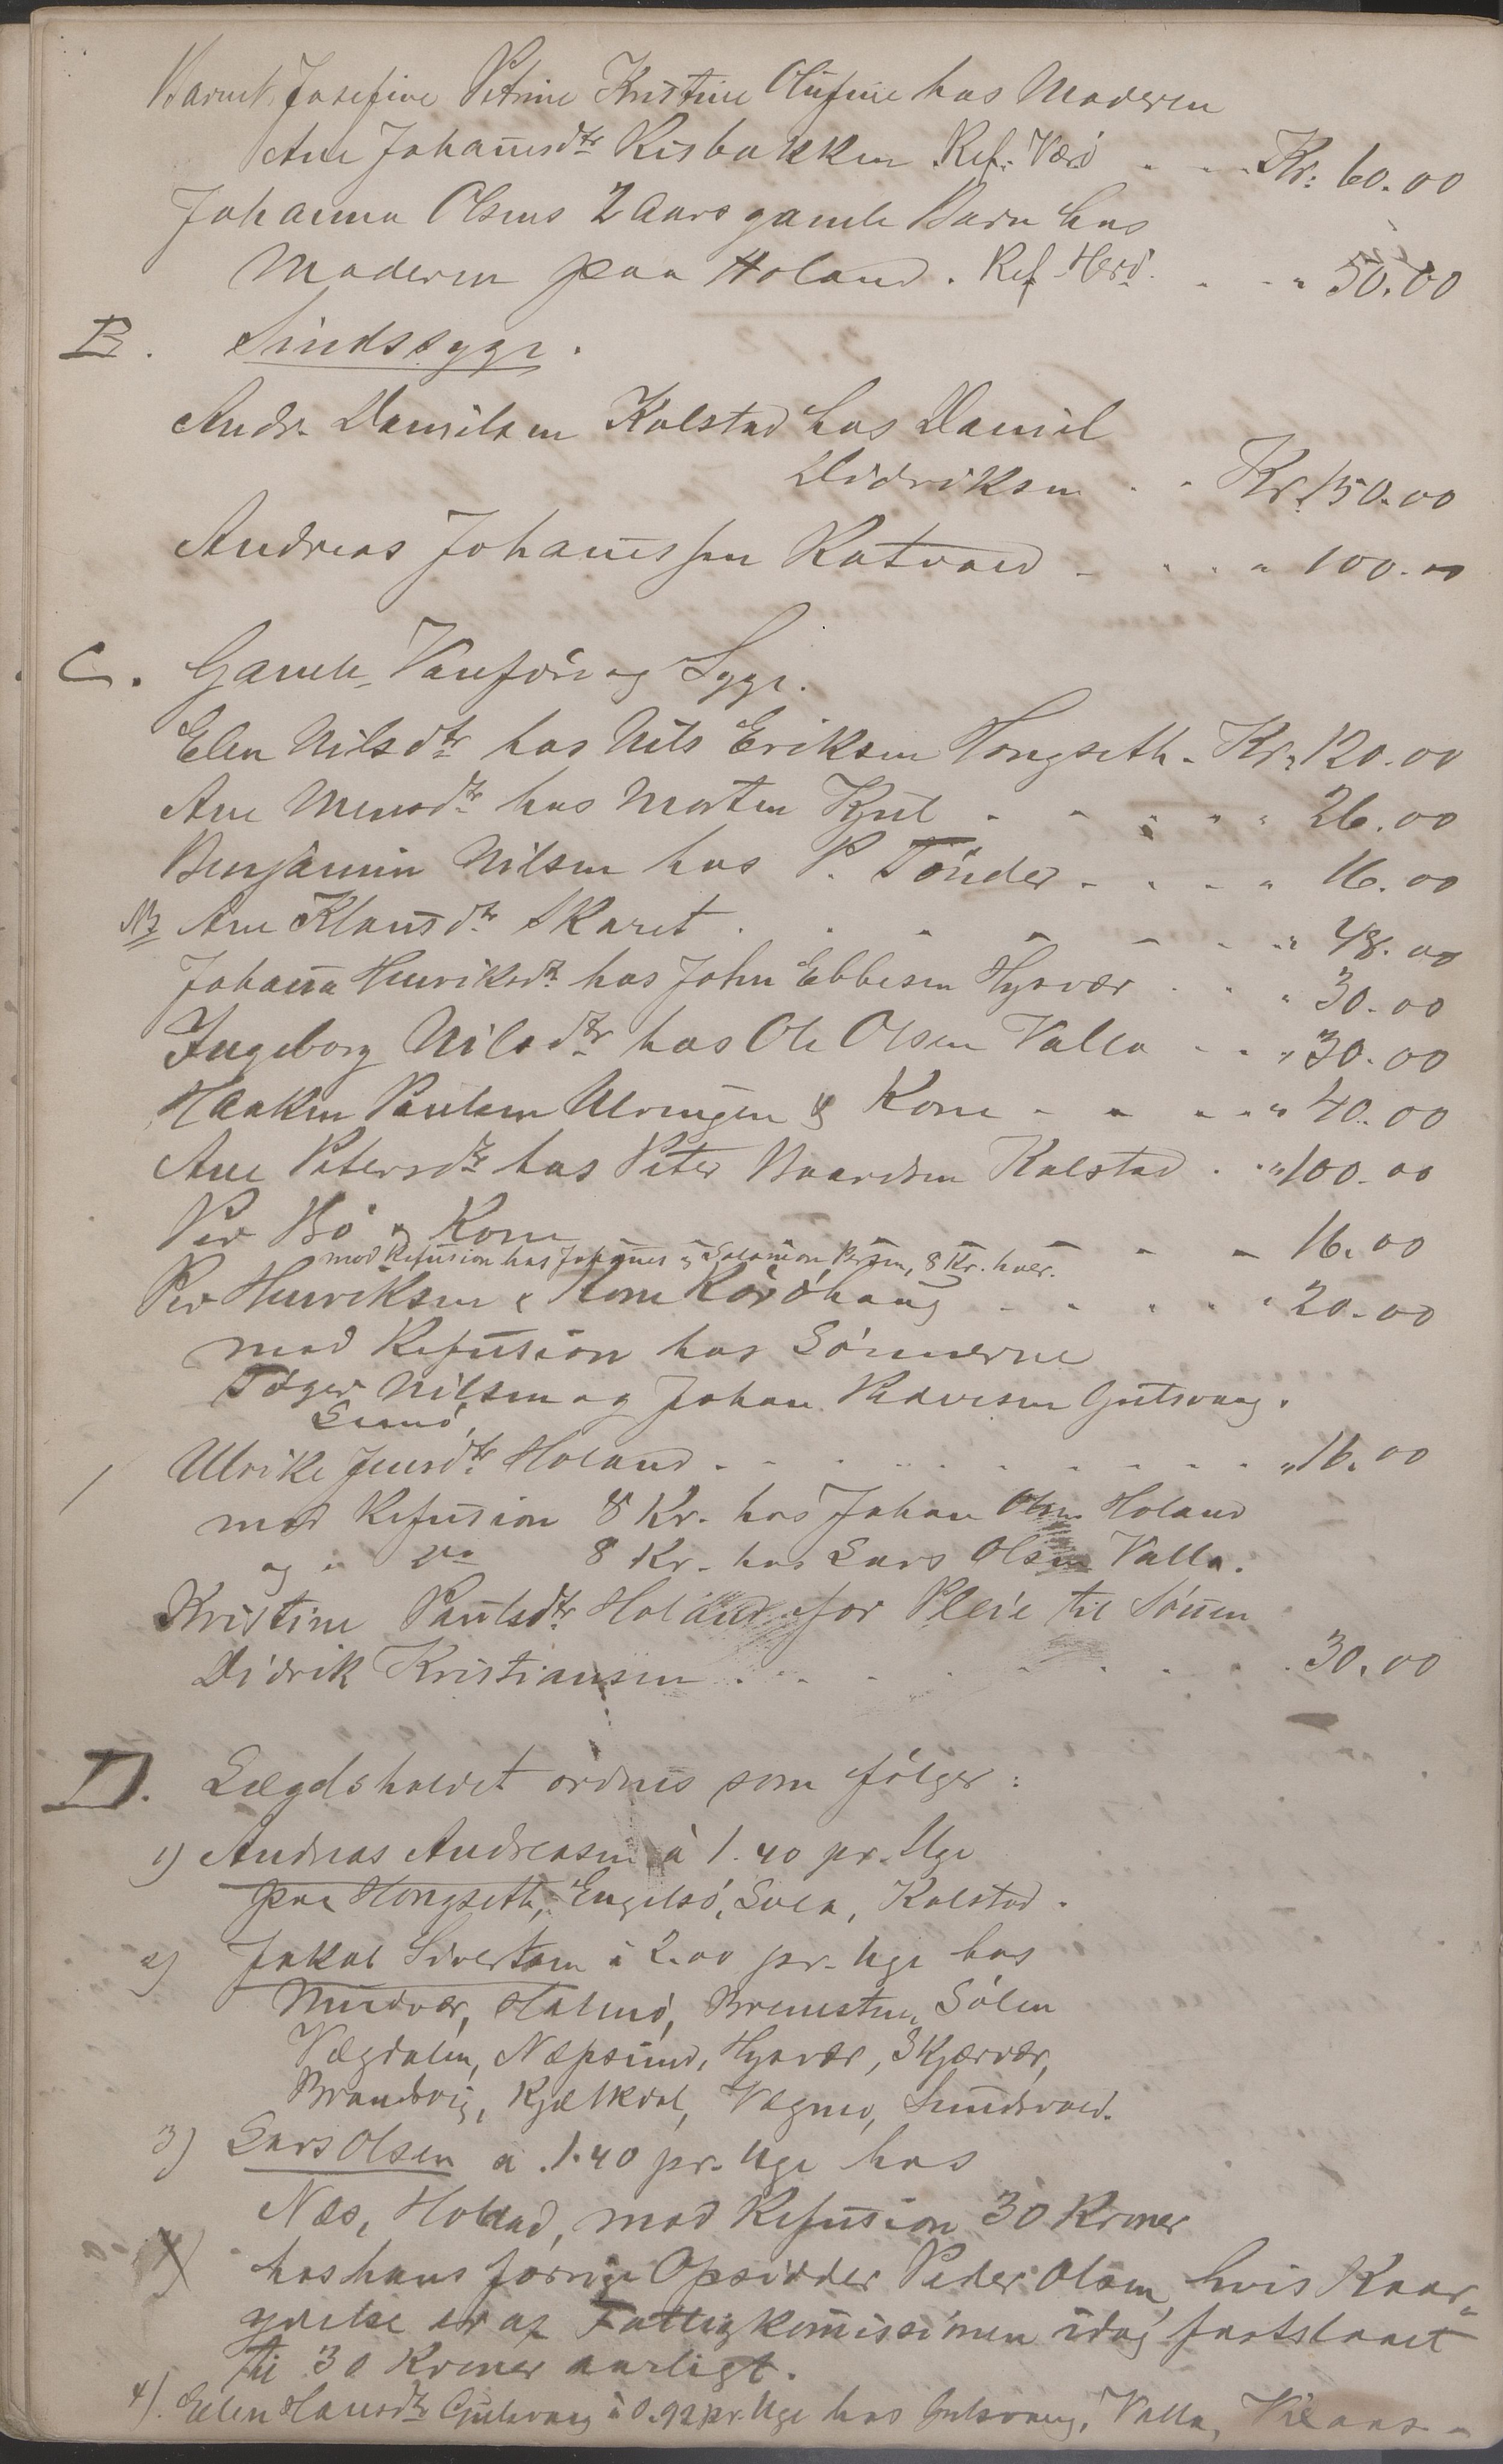 Barnet Josefine Petrine Kristine Olufine hos Moderen
Ane Johan̄esdtr Risbakken Ref. Værö - - - Kr: 60.00
Johanna Olsens 2 Aars gamle Barn hos
Moderen paa Holand. Ref Herö. - - " 50.00
B. Sindssyge.
Andr. Danielsen Kolstad hos Daniel
Didriksen - - Kr. 150.00
Andreas Johan̄essen - - - " 100.00
C. Gamle, Vanföre og Syge.
Elen Nilsdtr hos Nils Eriksen Hongseth - Kr. 120.00
Ane Monsdtr hos Morten - - - - " 26.00
Benjamin Nilsen hos P. Tönder - - - " 16.00
NB Ane Klausdtr Skaret . . - - - - " 48.00
Johan̄a Henriksdtr hos John Ebbesen Hysvær - - " 30.00
Ingeborg Nilsdtr hos Ole Olsen Valla - - " 30.00
Haaken Paulsen Ulvingen & Kone - - - - " 40.00
Ane Petersdtr hos Peter Baardsen Kolstad . " 100.00
Per Bö og Kone - - - 16.00
mod Refusion hos Johan̄es og Salamon Persen, 8 Kr. hver.
Per Henriksen & Kone Röröhaug - - - - " 20.00
mod Refusion hos Sönnerne
Töger Nilsen og Johan Pedersen Gutsvaag.
Ulrike Jensdtr Holand - - - - - - - - " 16.00
mod Refusion 8 Kr. hos Johan Olsen Holand
og " Do 8 Kr. hos Lars Olsen Valla.
Kristine Paulsdtr Holand for Pleie til Sönnen
Didrik Kristiansen . - - - - - - - 30.00
D. Lægdsholdet ordnes som fölger:
1) Andreas Andreasen à 1.40 pr. Uge
paa Hongseth, Engelsö, Kolstad.
2) Jakob Sivertsen à 2.00 pr. Uge hos
Mudvær, Halmö, Bremsten, Sölen
Vægdalen, Næpsund, Hysvær, Skjærvær,
Brandvig, Vægmo, Sundsvold.
3) Lars Olsen a 1.40 pr. Uge hos
Næs, Holand, mod Refusion 30 Kroner
hos hans forrige Opsidder Peder Olsen hvis Kaar-
ydelse er af Fattigkom̄issionen idag fastslaaet
til 30 Kroner aarligt.
4). Ellen Hansdtr Gutsvaag à 0.92 pr. Uge hos Gutsvaag, Valla,